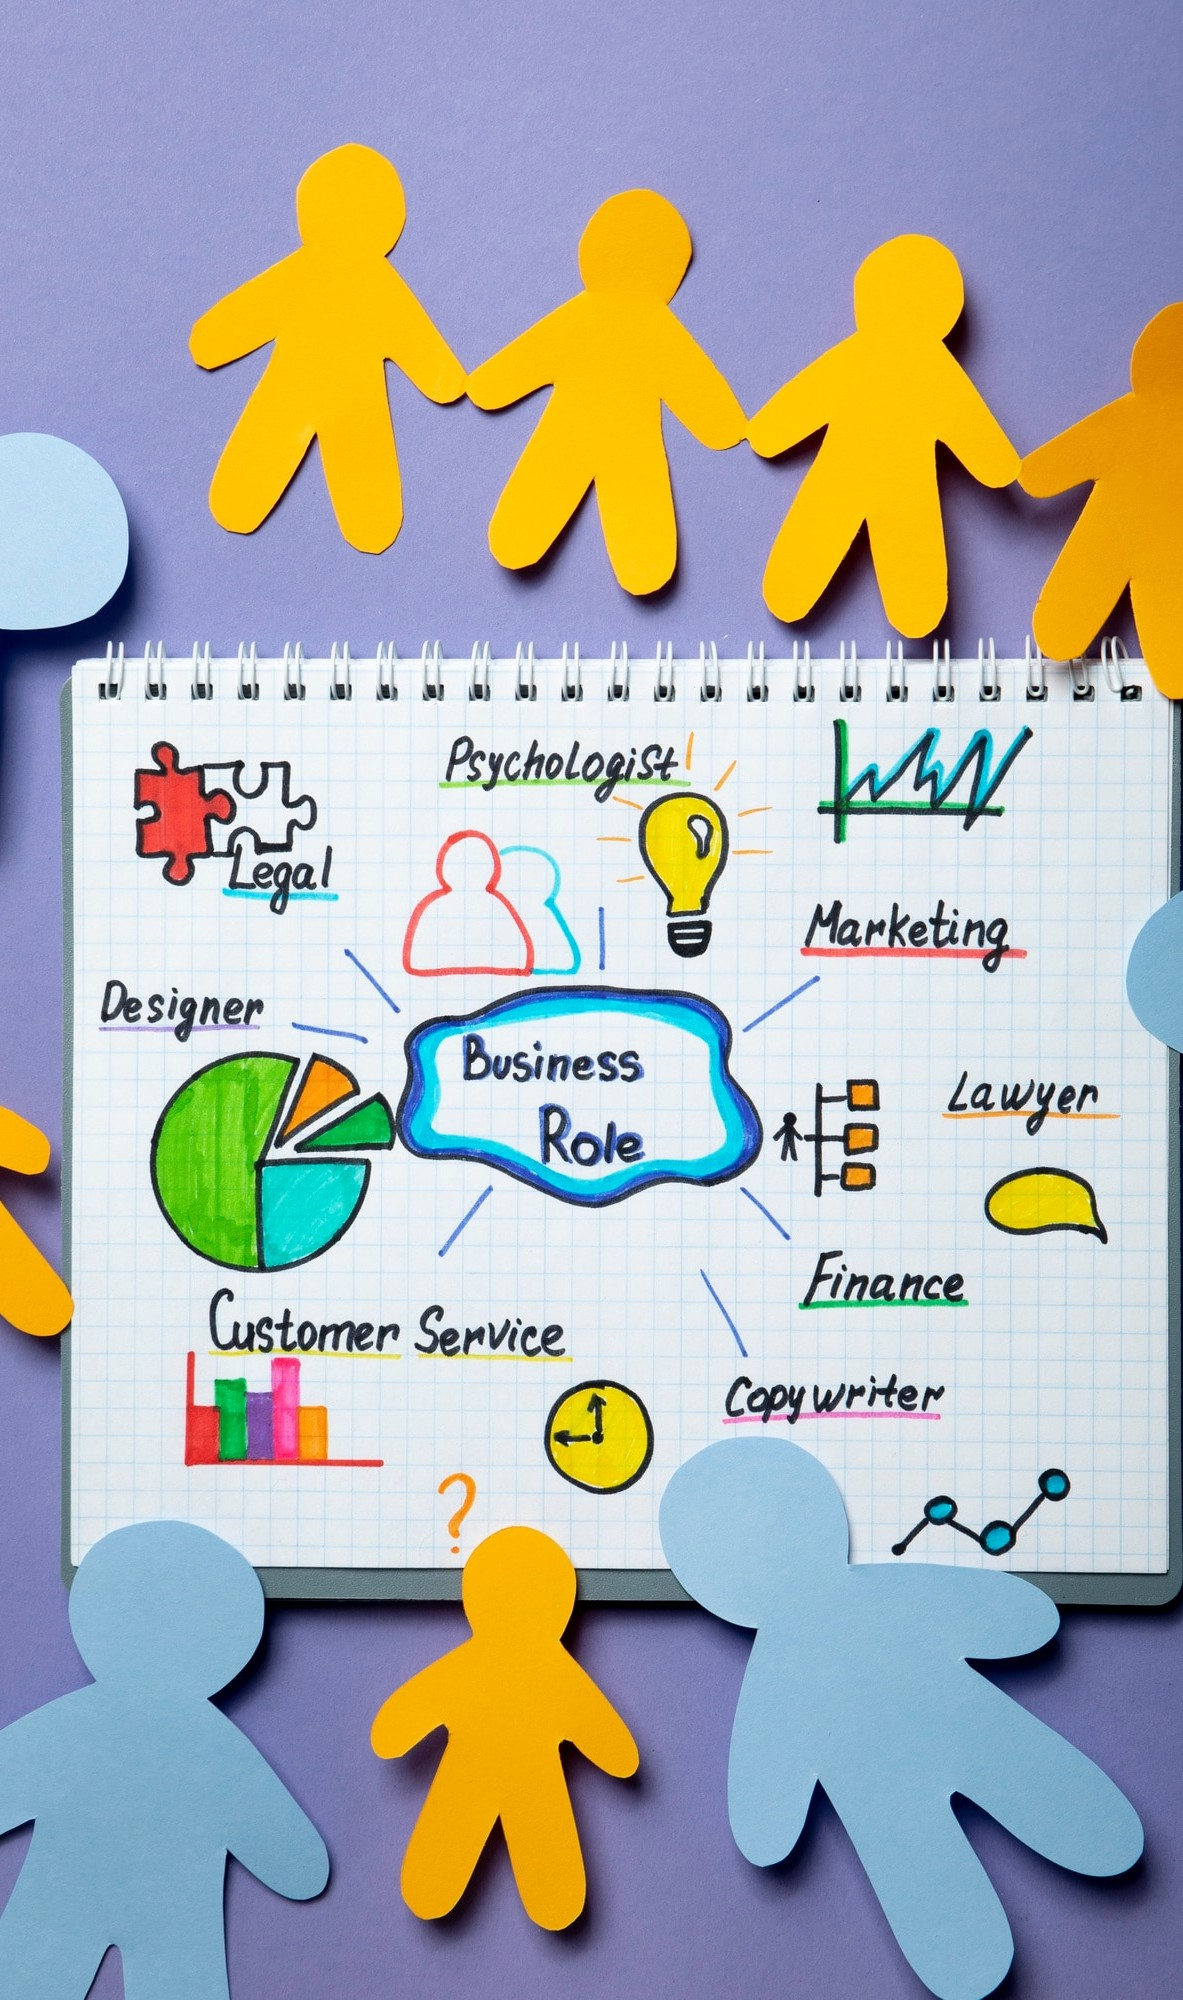 Psychologist
Legal
Marketing
Designer
Business
Role
Lawyer
Finance
Customer Service
Copywriter
?